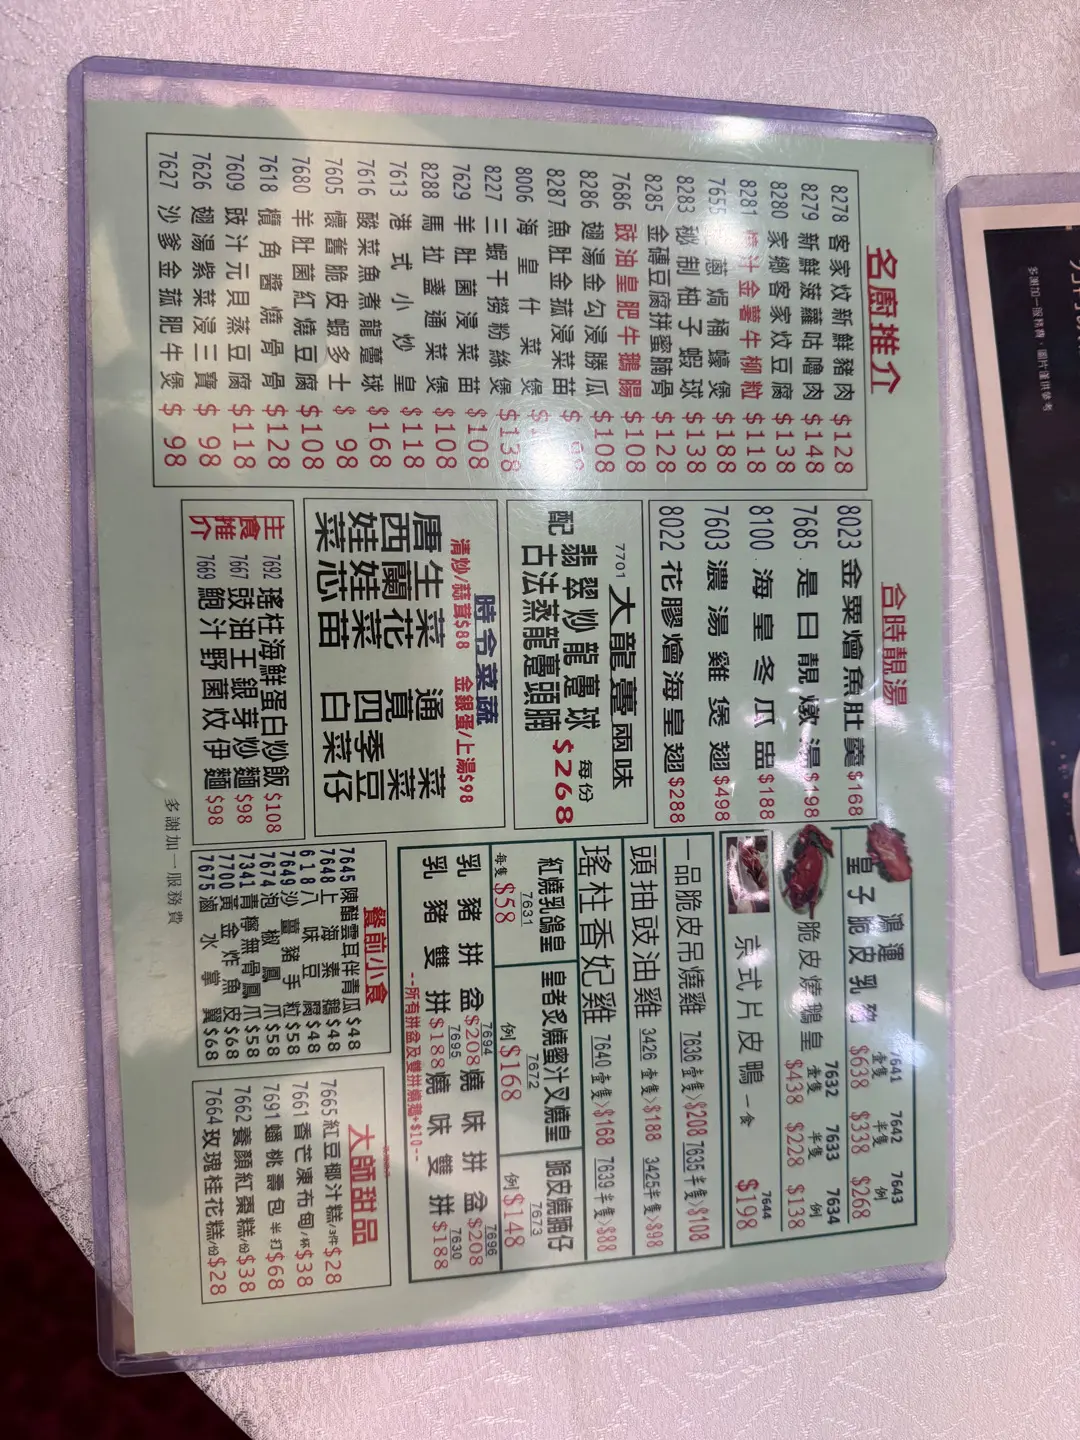 名廚推介
8278 客家炆新鮮豬肉 $128
8279 新鮮菠蘿咕嚕肉 $148
8280 家鄉客家炆豆腐 $138
8281 汁金薯牛柳粒 $118
7655 蔥焗桶蠔煲 $188
8283 秘制柚子蝦球 $138
8285 金磚豆腐拼蜜腩骨 $128
7686 豉油皇肥牛鵝腸 $108
8286 翅湯金勾浸勝瓜 $108
8287 魚肚金菰浸菜苗
8006 海皇什菜煲
8227 三蝦干撈粉絲煲 $138
7629 羊肚菌浸菜苗 $108
8288 馬拉盞通菜煲 $108
7613 港式小炒皇 $118
7616 酸菜魚煮龍躉球 $168
7605 懷舊脆皮蝦多士 $98
7680 羊肚菌紅燒豆腐 $108
7618 欖角醬燒骨 $128
7609 豉汁元貝蒸豆腐 $118
7626 翅湯紫菜浸三寶 $98
7627 沙爹金菰肥牛煲 $98
合時靚湯
8023 金粟燴魚肚羹 $168
7685 是日靚燉湯 $198
8100 海皇冬瓜盅 $188
7603 濃湯雞煲翅 $498
8022 花膠燴海皇翅 $288
7701 大龍躉兩味
翡翠炒龍躉球 每份
配 古法蒸龍躉頭腩 $268
時令菜蔬
清炒/蒜茸$88 金銀蛋/上湯$98
唐生菜 通菜
西蘭花 四季豆
娃娃菜 莧菜
菜芯苗 白菜仔
主食推介
7692 瑤柱海鮮蛋白炒飯 $108
7667 豉油王銀芽炒麵 $98
7669 鮑汁野菌炆伊麵 $98
鴻運 7641 7642 7643
皇子 脆皮乳豬 壹隻 半隻 例
$638 $338 $268
脆皮燒鵝皇 7632 7633 7634
壹隻 半隻 例
$438 $228 $138
京式片皮鴨 一食 7644 $198
一品脆皮吊燒雞 7636 壹隻>$208 7635 半隻>$108
頭抽豉油雞 3426 壹隻>$188 3425半隻>$98
瑤柱香妃雞 7640 壹隻>$168 7639半隻>$88
紅燒乳鴿皇 皇者炙燒蜜汁叉燒皇 脆皮燒腩仔
7631 7672 7673
每隻 $58 例 $168 例 $148
乳豬拼盆 7694 $208 燒味拼盆 7696 $208
乳豬雙拼 7695 $188 燒味雙拼 7630 $188
--所有拼盆及雙拼燒鵝+$10--
餐前小食
7645 陳醋雲耳伴青瓜 $48
7648 上海素鵝 $48
618 八味豆腐 $48
7649 沙薑豬手粒 $58
7674 泡椒鳳爪 $58
7341 青檸無骨鳳爪 $58
7700 黃金炸魚皮 $68
7675 滷水掌翼 $68
大師甜品
7665 紅豆椰汁糕/3件 $28
7661 香芒凍布甸/杯 $38
7691 蟠桃壽包 半打 $68
7662 養顏紅棗糕/份 $38
7664 玫瑰桂花糕/份 $28
多謝加一服務費
多謝加一服務費，圖片僅供參考